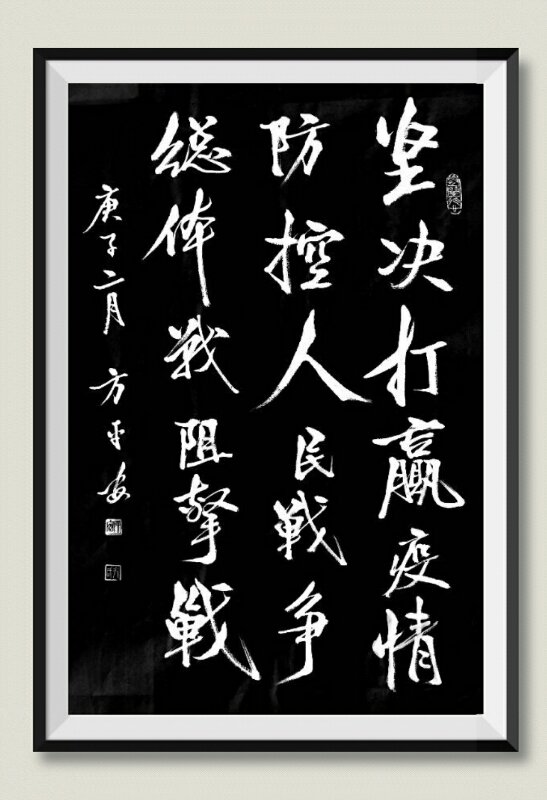 坚决打赢疫情
防控人民戰争
総体战阻擊戰
庚子二月 方平安